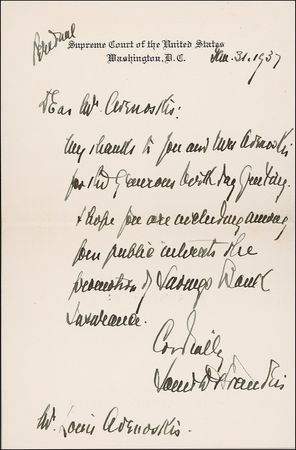 Personal
Supreme Court of the United States
Washington, D.C.
Jan. 31, 1937
Dear Mr. Adenoskis:
My thanks to you and Mrs Adenoskis
for the generous birthday greeting.
I hope you are including among
your public interests the
promotion of Savings Bank
Insurance.
Cordially
Louis D Brandeis
Mr. Louis Adenoskis.